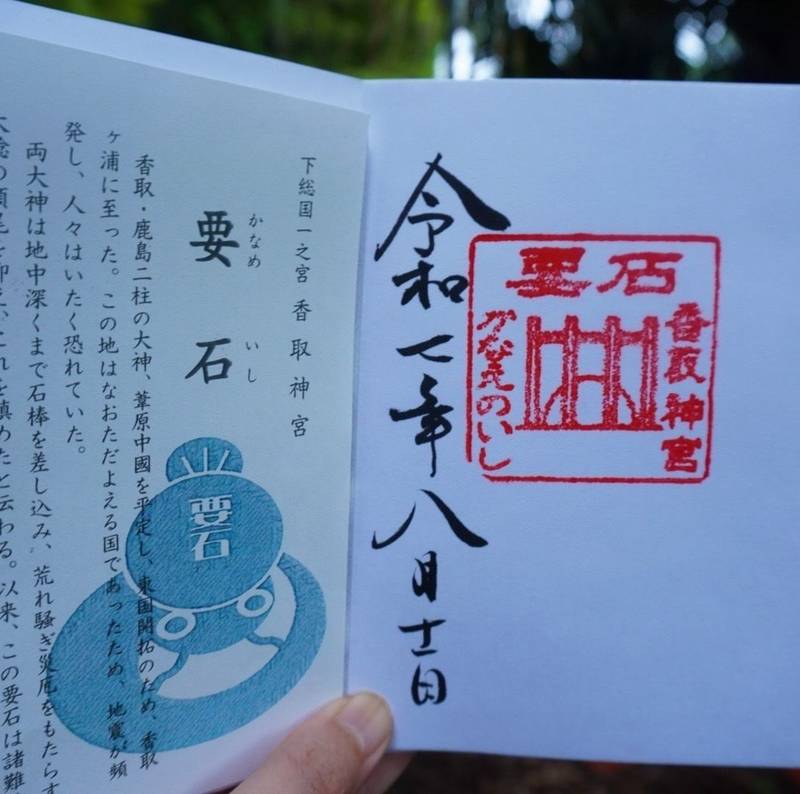 香取神宮
要石
かなめのいし
令和七年八月十二日
下総国一之宮 香取神宮
要石
かなめ いし
香取・鹿島二柱の大神、葦原中國を平定し、東国開拓のため、香取
ヶ浦に至った。この地はなおただよえる国であったため、地震が頻
発し、人々はいたく恐れていた。
両大神は地中深くまで石棒を差し込み、荒れ騒ぎ災厄をもたらす
大鯰の頭尾を抑え、これを鎮めたと伝わる。以来、この要石は諸難
要石